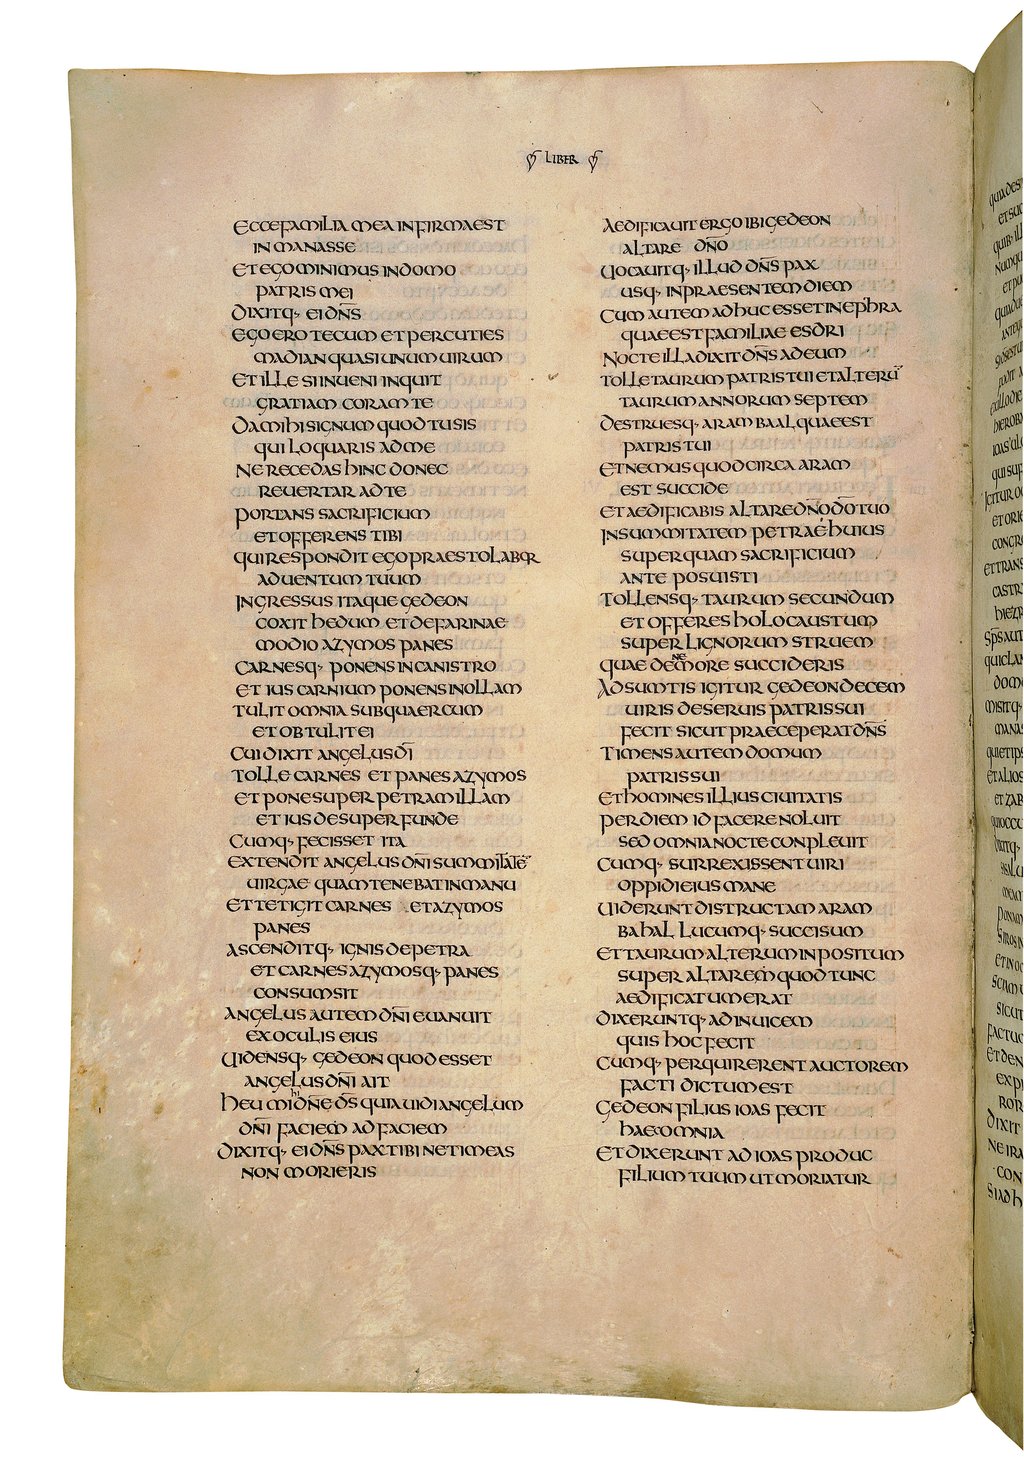 LIBER
ECCE FAMILIA MEA INFIRMA EST
IN MANASSE
ET EGO MINIMUS IN DOMO
PATRIS MEI
DIXITQ· EI DN̄S
EGO ERO TECUM ET PERCUTIES
MADIAN QUASI UNUM UIRUM
ET ILLE SI INUENI INQUIT
GRATIAM CORAM TE
DA MIHI SIGNUM QUOD TU SIS
QUI LOQUARIS AD ME
NE RECEDAS HINC DONEC
REUERTAR AD TE
PORTANS SACRIFICIUM
ET OFFERENS TIBI
QUI RESPONDIT EGO PRAESTOLABOR
ADUENTUM TUUM
INGRESSUS ITAQUE GEDEON
COXIT HEDUM ET DE FARINAE
MODIO AZYMOS PANES
CARNESQ· PONENS IN CANISTRO
ET IUS CARNIUM PONENS IN OLLAM
TULIT OMNIA SUB QUAERCUM
ET OBTULIT EI
CUI DIXIT ANGELUS DĪ
TOLLE CARNES ET PANES AZYMOS
ET PONE SUPER PETRAM ILLAM
ET IUS DESUPER FUNDE
CUMQ· FECISSET ITA
EXTENDIT ANGELUS DN̄I SUMMITATĒ
UIRGAE QUAM TENEBAT IN MANU
ET TETIGIT CARNES ET AZYMOS
PANES
ASCENDITQ· IGNIS DE PETRA
ET CARNES AZYMOSQ· PANES
CONSUMSIT
ANGELUS AUTEM DN̄I EUANUIT
EX OCULIS EIUS
UIDENSQ· GEDEON QUOD ESSET
ANGELUS DN̄I AIT
HEU MIhi DN̄E D̄S QUIA UIDI ANGELUM
DN̄I FACIEM AD FACIEM
DIXITQ· EI DN̄S PAX TIBI NE TIMEAS
NON MORIERIS
AEDIFICAUIT ERGO IBI GEDEON
ALTARE DN̄O
UOCAUITQ· ILLUD DN̄S PAX
USQ· IN PRAESENTEM DIEM
CUM AUTEM ADHUC ESSET IN EPHRA
QUAE EST FAMILIAE ESDRI
NOCTE ILLA DIXIT DN̄S AD EUM
TOLLE TAURUM PATRIS TUI ET ALTERŪ
TAURUM ANNORUM SEPTEM
DESTRUESQ· ARAM BAAL QUAE EST
PATRIS TUI
ET NEMUS QUOD CIRCA ARAM
EST SUCCIDE
ET AEDIFICABIS ALTARE DN̄O D̄O TUO
IN SUMMITATEM PETRAE HUIUS
SUPER QUAM SACRIFICIUM
ANTE POSUISTI
TOLLENSQ· TAURUM SECUNDUM
ET OFFERES HOLOCAUSTUM
SUPER LIGNORUM STRUEM
QUAE DE NEMORE SUCCIDERIS
ADSUMTIS IGITUR GEDEON DECEM
UIRIS DE SERUIS PATRIS SUI
FECIT SICUT PRAECEPERAT DN̄S
TIMENS AUTEM DOMUM
PATRIS SUI
ET HOMINES ILLIUS CIUITATIS
PER DIEM ID FACERE NOLUIT
SED OMNIA NOCTE CONPLEUIT
CUMQ· SURREXISSENT UIRI
OPPIDI EIUS MANE
UIDERUNT DISTRUCTAM ARAM
BAHAL LUCUMQ· SUCCISUM
ET TAURUM ALTERUM INPOSITUM
SUPER ALTAREM QUOD TUNC
AEDIFICATUM ERAT
DIXERUNTQ· AD INUICEM
QUIS HOC FECIT
CUMQ· PERQUIRERENT AUCTOREM
FACTI DICTUM EST
GEDEON FILIUS IOAS FECIT
HAEC OMNIA
ET DIXERUNT AD IOAS PRODUC
FILIUM TUUM UT MORIATUR